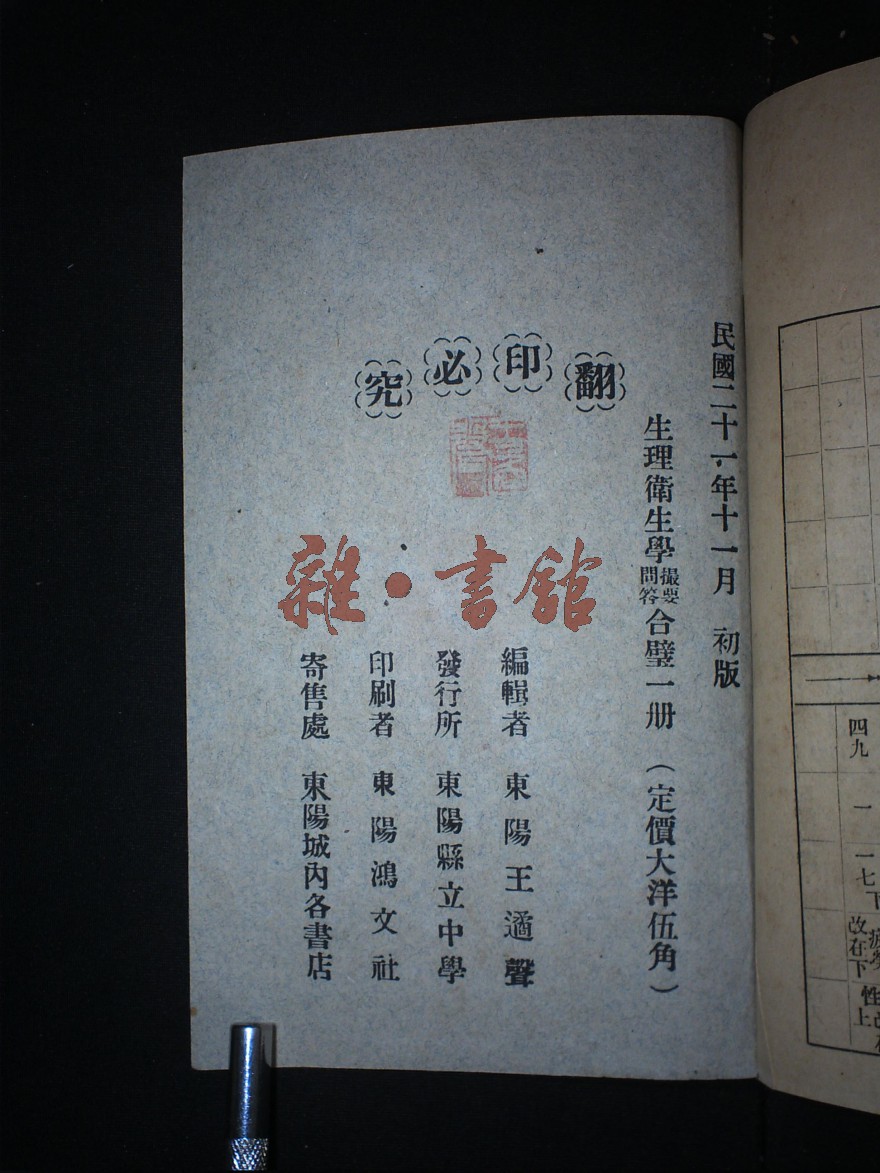 民國二十一年十一月 初版
生理衛生學撮要問答合璧一册 (定價大洋伍角)
翻印必究
編輯者 東陽王適聲
發行所 東陽縣立中學
印刷者 東陽鴻文社
寄售處 東陽城內各書店
雜·書館
四九 一 一七下
改在下
性
上